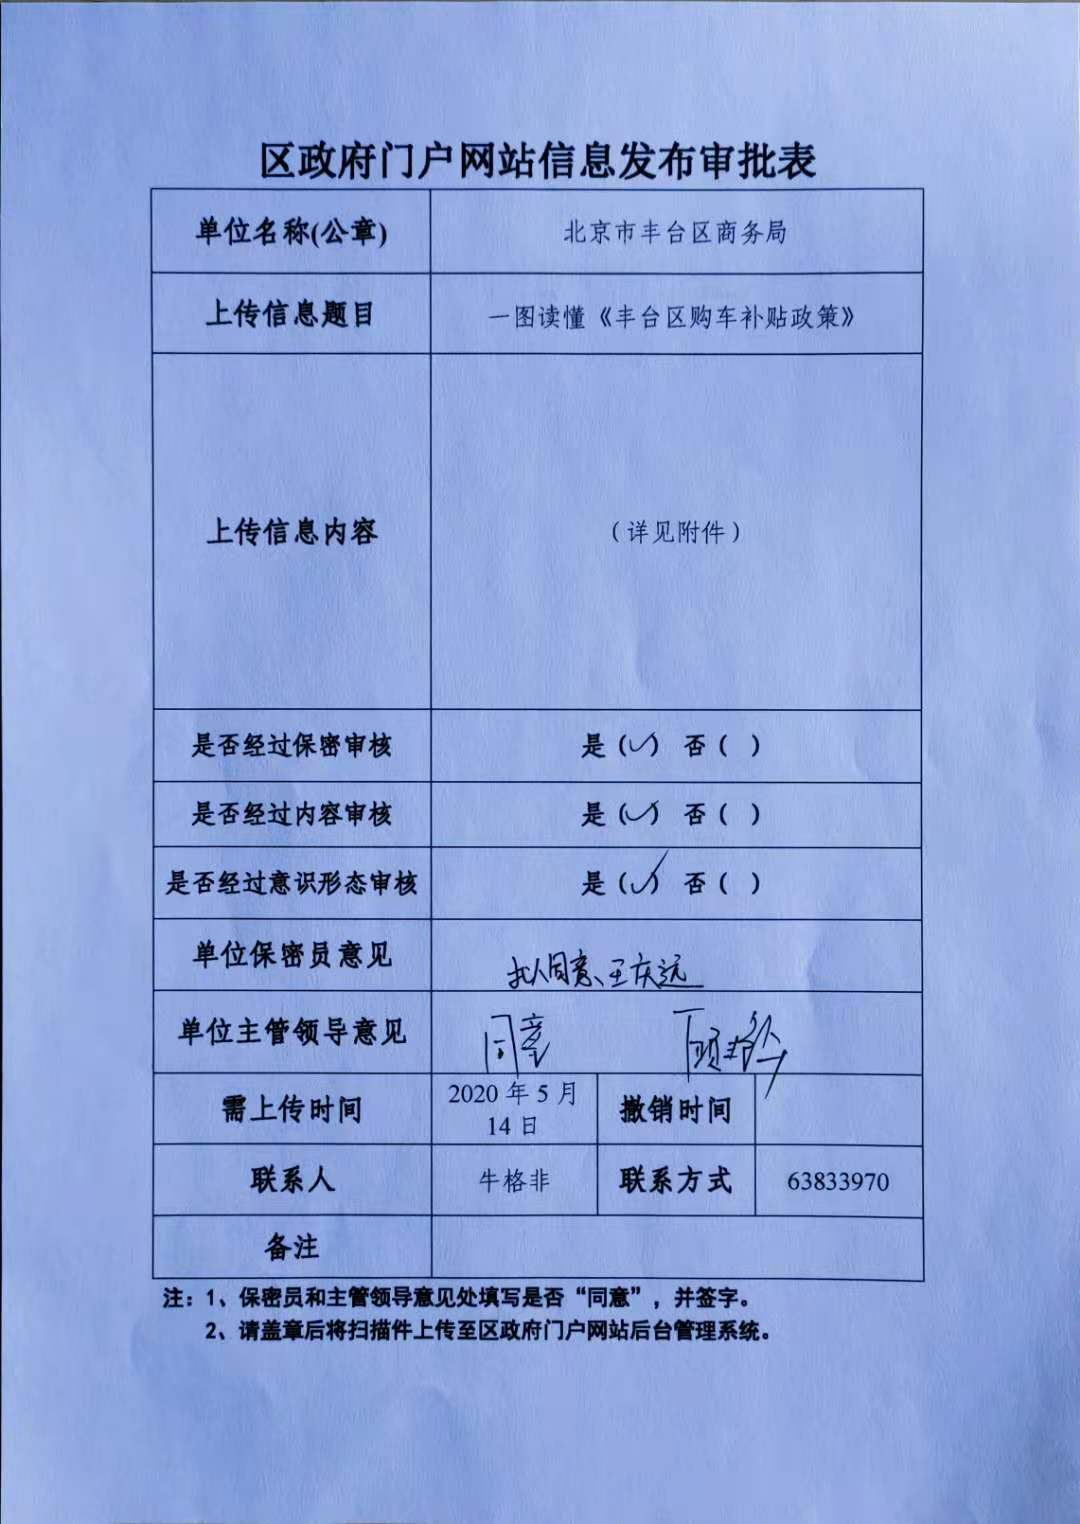 区政府门户网站信息发布审批表
单位名称(公章) 北京市丰台区商务局
上传信息题目 一图读懂《丰台区购车补贴政策》
上传信息内容 （详见附件）
是否经过保密审核 是（✓）否（ ）
是否经过内容审核 是（✓）否（ ）
是否经过意识形态审核 是（✓）否（ ）
单位保密员意见 同意、王庆远
单位主管领导意见 同意
需上传时间 2020 年 5 月 14 日 撤销时间
联系人 牛格非 联系方式 63833970
备注
注：1、保密员和主管领导意见处填写是否“同意”，并签字。
2、请盖章后将扫描件上传至区政府门户网站后台管理系统。